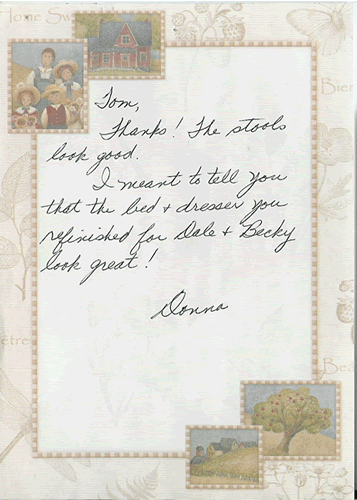 Home Sw
Bien
Tom,
Thanks! The stools
look good.
I meant to tell you
that the bed + dresser you
refinished for Dale + Becky
look great!
Donna